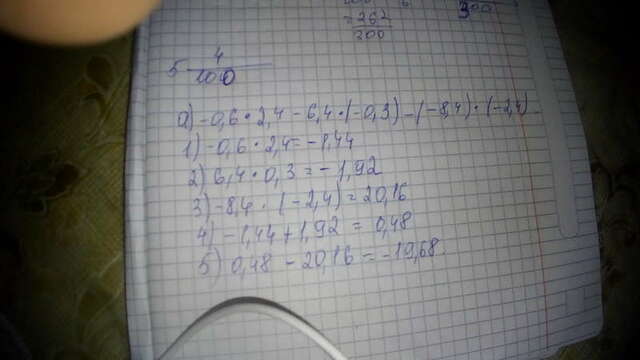 = 262/200
300
5 4/100
а) -0,6 · 2,4 - 6,4 · (-0,3) - (-8,4) · (-2,4)
1) -0,6 · 2,4 = -1,44
2) 6,4 · 0,3 = -1,92
3) -8,4 · (-2,4) = 20,16
4) -1,44 + 1,92 = 0,48
5) 0,48 - 20,16 = -19,68.